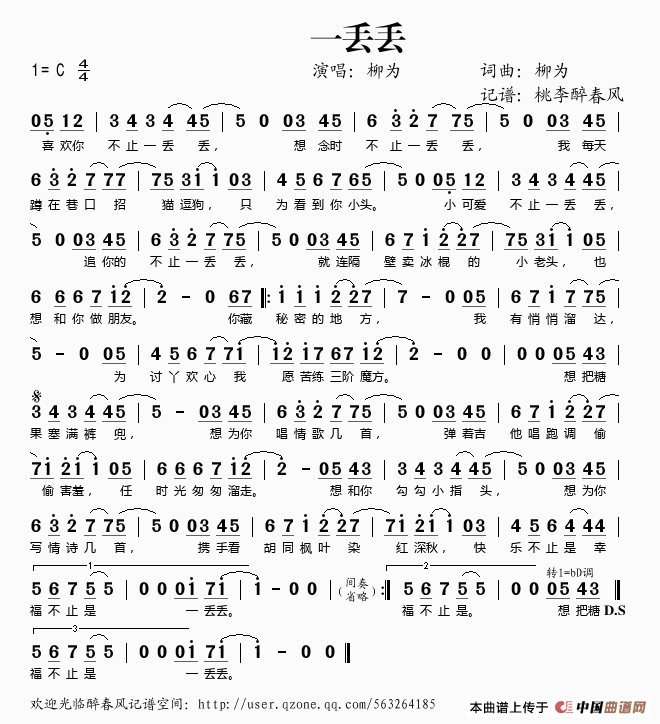 一丢丢
1=C 4/4 演唱：柳为 词曲：柳为
记谱：桃李醉春风
05 12 | 3 4 3 4 45 | 5 0 03 45 | 6 3 2 7 75 | 5 0 03 45 |
喜欢你 不止一丢 丢， 想 念时 不止一丢 丢， 我 每天
6 3 2 7 77 | 75 31 1 03 | 4 5 6 7 65 | 5 0 05 12 | 3 4 3 4 45 |
蹲在巷口招 猫逗狗， 只 为看到你小头。 小可爱 不止一丢 丢，
5 0 03 45 | 6 3 2 7 75 | 5 0 03 45 | 6 7 1 2 27 | 75 31 1 05 |
追你的 不止一丢 丢， 就连隔 壁卖冰棍 的 小老头， 也
6 6 6 7 12 | 2 - 0 67 ‖: 1 1 1 2 27 | 7 - 0 05 | 6 7 1 7 75 |
想和你做朋友。 你藏 秘密的地 方， 我 有悄悄溜 达，
5 - 0 05 | 4 5 6 7 71 | 12 17 67 12 | 2 - 0 0 | 0 0 05 43 |
为 讨丫欢心 我 愿苦练三阶魔方。 想把糖
3 4 3 4 45 | 5 - 03 45 | 6 3 2 7 75 | 5 0 03 45 | 6 7 1 2 27 |
果塞满裤 兜， 想为你 唱情歌几 首， 弹着吉 他唱跑调 偷
71 21 1 05 | 6 6 6 7 12 | 2 - 05 43 | 3 4 3 4 45 | 5 0 03 45 |
偷害羞， 任 时光匆匆溜走。 想和你 勾勾小指 头， 想为你
6 3 2 7 75 | 5 0 03 45 | 6 7 1 2 27 | 71 21 1 03 | 4 5 6 4 44 |
写情诗几 首， 携手看 胡同枫叶 染 红深秋， 快 乐不止是 幸
1 2 转1=bD调
5 6 7 5 5 | 0 0 01 71 | 1 - 0 0 | (间奏省略) :‖ 5 6 7 5 5 | 0 0 05 43 ‖
福不止是 一丢丢。 福不止是。 想把糖 D.S
3
5 6 7 5 5 | 0 0 01 71 | 1 - 0 0 ‖
福不止是 一丢丢。
欢迎光临醉春风记谱空间：http://user.qzone.qq.com/563264185 本曲谱上传于 中国曲谱网